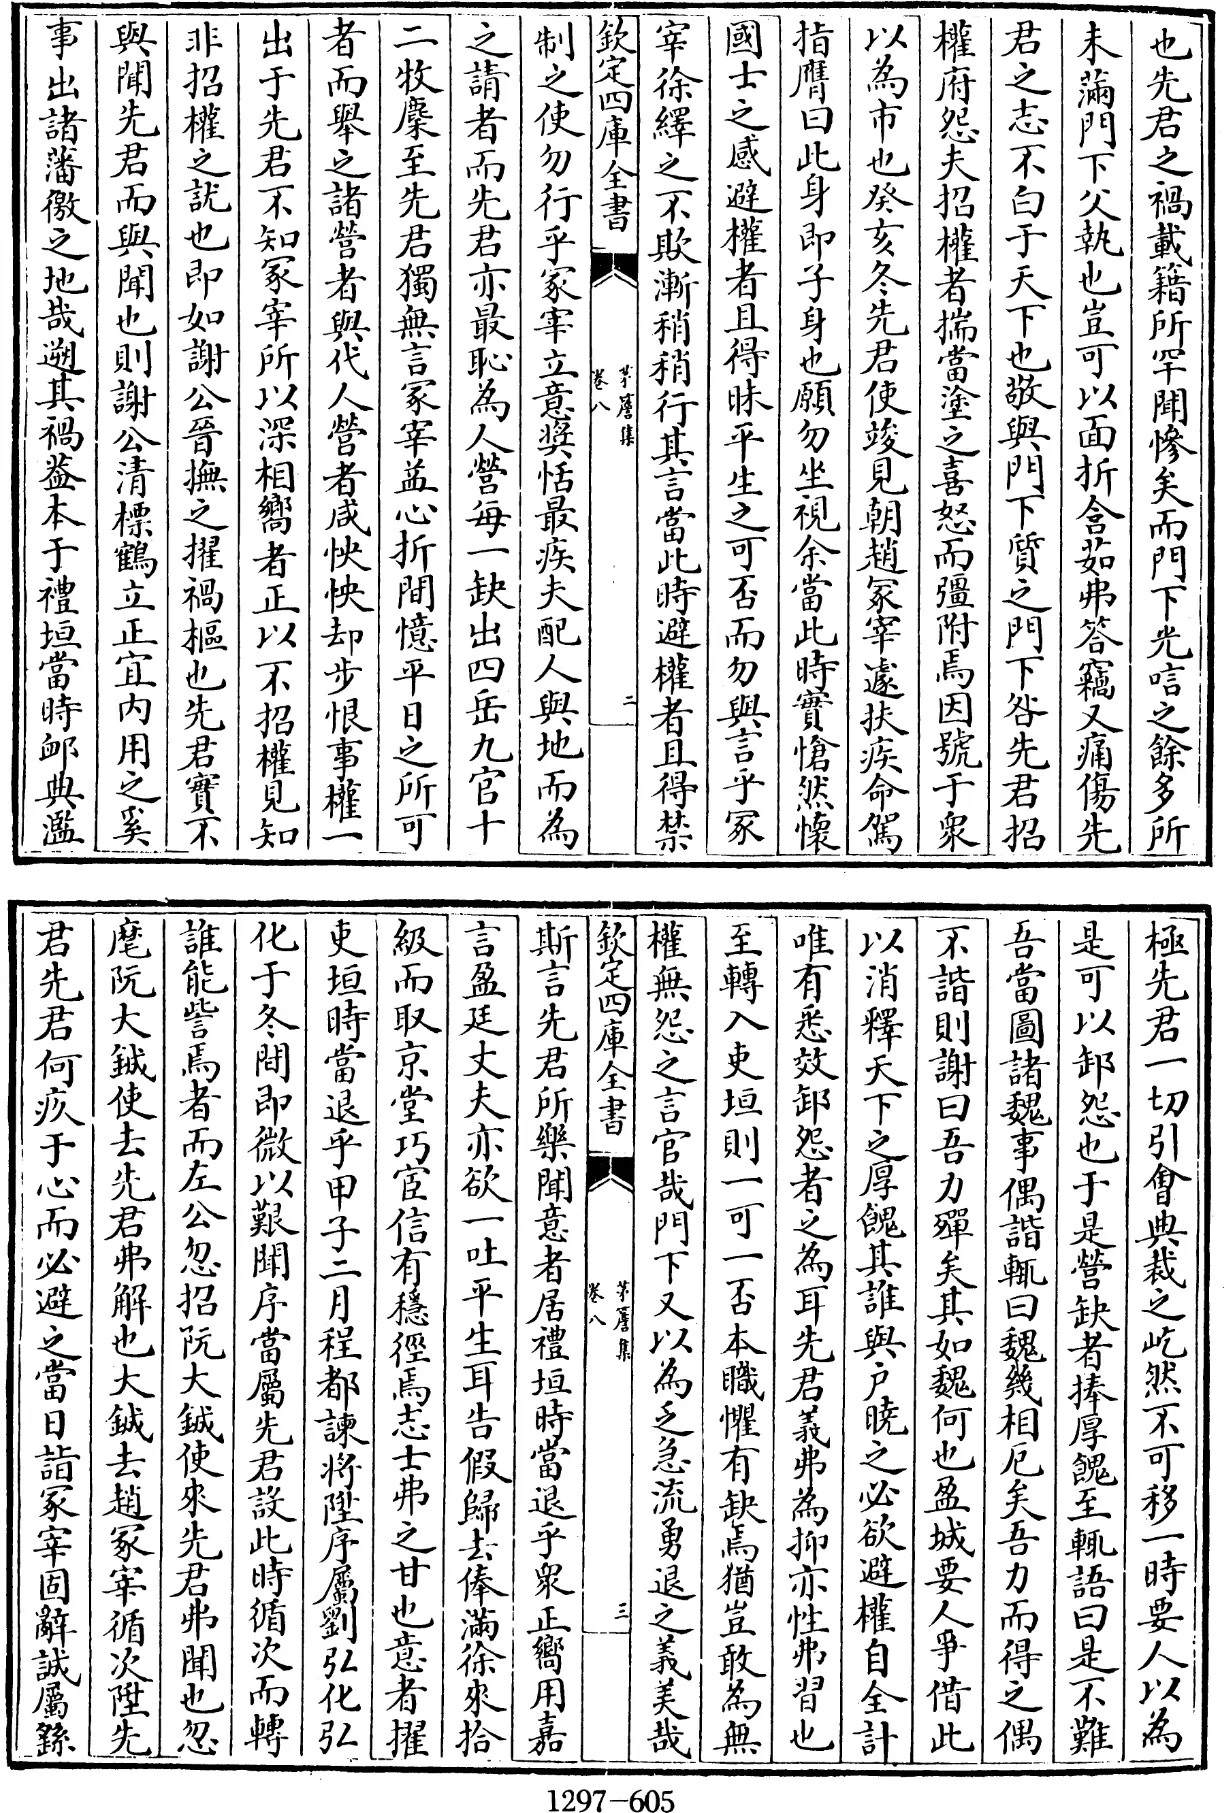 也先君之禍載籍所罕聞慘矣而門下光唁之餘多所
未滿門下父執也豈可以面折含茹弗答竊又痛傷先
君之志不白于天下也敬與門下質之門下咎先君招
權府怨夫招權者揣當塗之喜怒而彊附焉因號于衆
以為市也癸亥冬先君使竣見朝趙冢宰遽扶疾命駕
指膺曰此身即子身也願勿坐視余當此時實愴然懷
國士之感避權者且得昧平生之可否而勿與言乎冢
宰徐繹之不欺漸稍稍行其言當此時避權者且得禁
欽定四庫全書
茅簷集
卷八
二
制之使勿行乎冢宰立意奬恬最疾夫配人與地而為
之請者而先君亦最恥為人營每一缺出四岳九官十
二牧麇至先君獨無言冢宰益心折間憶平日之所可
者而舉之諸營者與代人營者咸怏怏却步恨事權一
出于先君不知冢宰所以深相嚮者正以不招權見知
非招權之說也即如謝公晉撫之擢禍樞也先君實不
與聞先君而與聞也則謝公清標鶴立正宜内用之奚
事出諸藩徼之地哉遡其禍葢本于禮垣當時䘏典濫
極先君一切引會典裁之屹然不可移一時要人以為
是可以卸怨也于是營缺者捧厚餽至輒語曰是不難
吾當圖諸魏事偶諧輒曰魏幾相厄矣吾力而得之偶
不諧則謝曰吾力殫矣其如魏何也盈城要人爭借此
以消釋天下之厚餽其誰與戶曉之必欲避權自全計
唯有悉效卸怨者之為耳先君義弗為抑亦性弗習也
至轉入吏垣則一可一否本職懼有缺焉猶豈敢為無
權無怨之言官哉門下又以為乏急流勇退之義美哉
欽定四庫全書
茅簷集
卷八
三
斯言先君所樂聞意者居禮垣時當退乎衆正嚮用嘉
言盈廷丈夫亦欲一吐平生耳告假歸去俸滿徐來拾
級而取京堂巧宦信有穩徑焉志士弗之甘也意者擢
吏垣時當退乎甲子二月程都諫將陞序屬劉弘化弘
化于冬間即微以艱聞序當屬先君設此時循次而轉
誰能訾焉者而左公忽招阮大鋮使來先君弗聞也忽
麾阮大鋮使去先君弗解也大鋮去趙冢宰循次陞先
君先君何疚于心而必避之當日詣冢宰固辭誠屬繇
1297-605